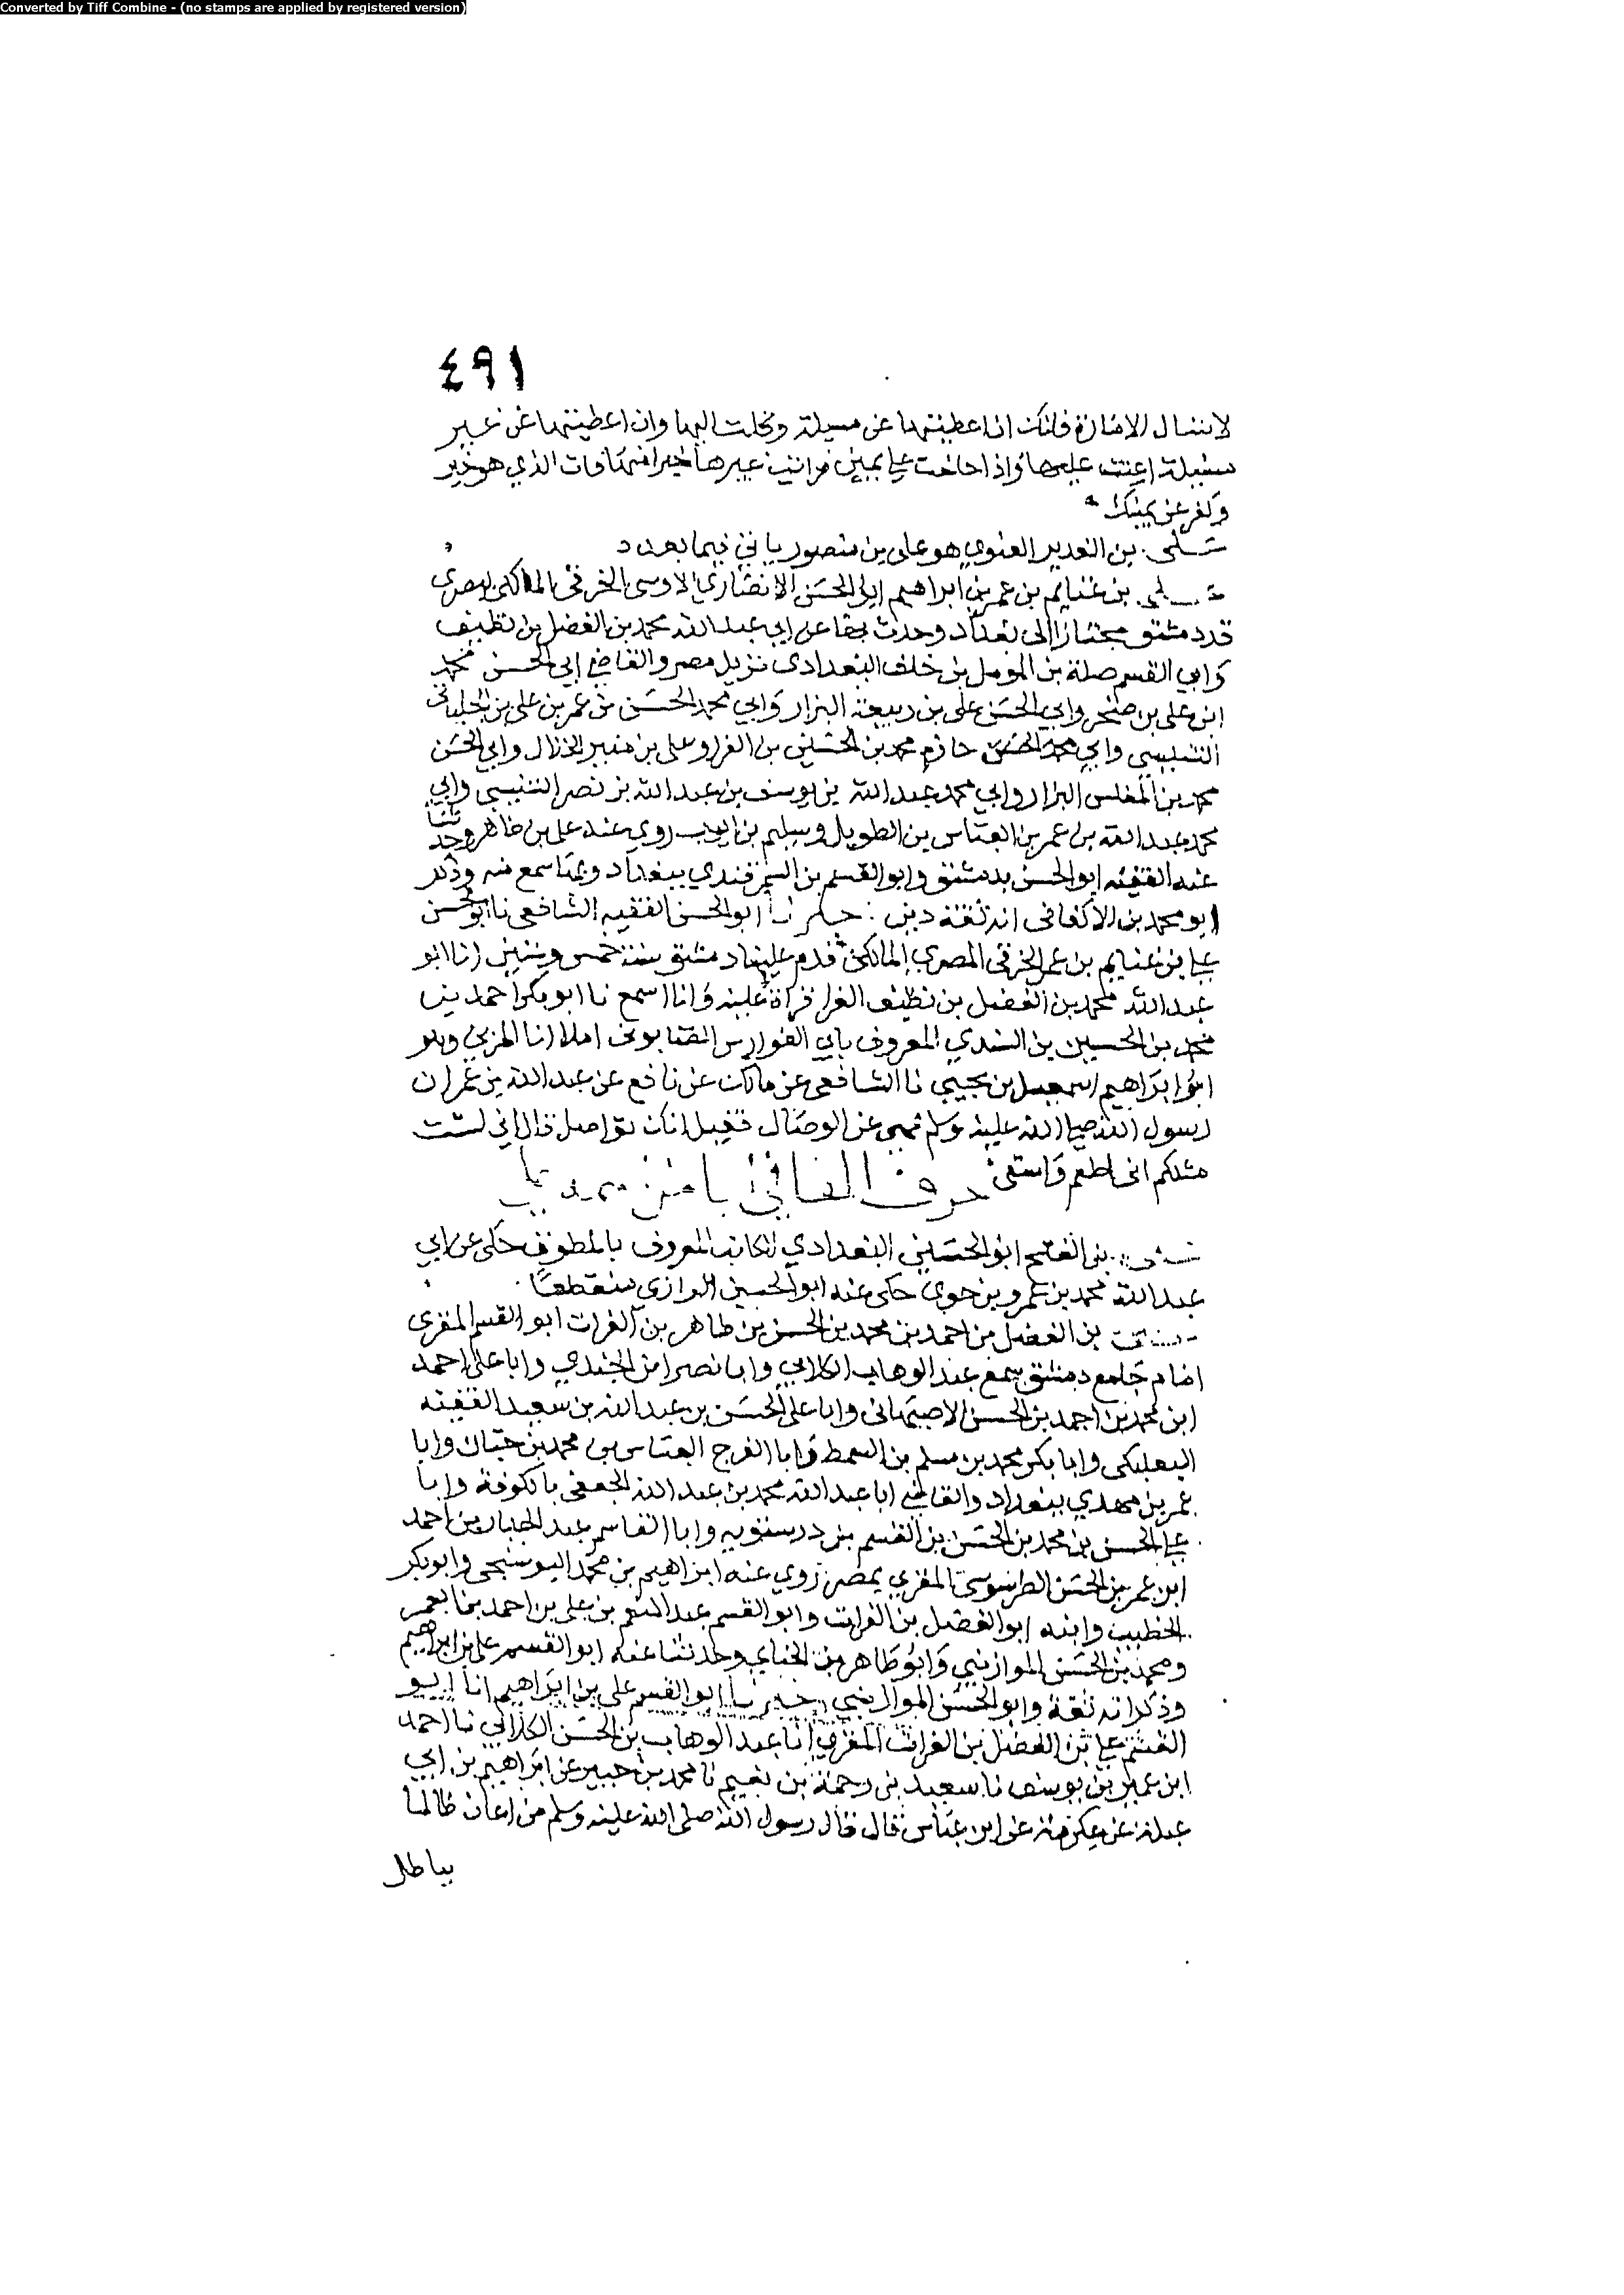 Converted by Tiff Combine - (no stamps are applied by registered version)
٤٩١
لا تسال الامارة فانك ان اعطيتها عن مسيلة وكلت اليها وان اعطيتها عن غير
مسيلة اعنت عليها واذا حلفت على يمين فرايت غيرها خيرا منها فات الذي هو خير
وكفر عن يمينك
علي بن الغدير الغنوي هو علي بن منصور ياتي فيما بعد
علي بن غنايم بن عمر بن ابراهيم ابو الحسن الانصاري الاوسي الخرقي المالكي المصري
قدم دمشق مجتازا الى بغداد وحدث بها عن ابي عبد الله محمد بن الفضل بن نظيف
وابي القسم صلة بن المومل بن خلف البغدادي نزيل مصر والقاضي ابي الحسن محمد
ابن علي بن صخر وابي الحسن علي بن ربيعة البزار وابي محمد الحسن بن عمر بن علي بن
التنيسي وابي حازم محمد بن الحسين بن الفرا وعلي بن منير الخلال وابي الحسن
محمد بن المغلس البزار وابي محمد عبد الله بن يوسف بن عبد الله بن نصر التنيسي وابي
محمد عبد الله بن عمر بن العباس بن الطويل وسليم بن ايوب روى عنه علي بن طاهر وحدثنا
عنه الفقيه ابو الحسن بدمشق وابو القسم بن السمرقندي ببغداد وبها سمع منه وذكر
ابو محمد بن الاكفاني انه ثقة دين حدثنا ابو الحسن الفقيه الشافعي نا ابو الحسن
علي بن غنايم بن عمر الخرقي المصري المالكي قدم علينا دمشق سنة خمس وستين انا ابو
عبد الله محمد بن الفضل بن نظيف الفرا قراة عليه وانا اسمع نا ابو بكر احمد بن
محمد بن الحسين بن السندي المعروف بابي الفوارس الصابوني املا نا المزني وهو
ابو ابراهيم اسمعيل بن يحيى نا الشافعي عن مالك عن نافع عن عبد الله بن عمر ان
رسول الله صلى الله عليه وسلم نهى عن الوصال فقيل انك تواصل قال اني لست
مثلكم اني اطعم واسقى حرف الفا في ابا من اسمه علي
علي بن الفتح ابو الحسين البغدادي الكاتب المعروف بالمطوق حكى عن ابي
عبد الله محمد بن عمرو بن حوي حكى عنه ابو الحسين الرازي منقطعا
علي بن الفضل بن احمد بن محمد بن الحسن بن طاهر بن الفرات ابو القسم المقري
امام جامع دمشق سمع عبد الوهاب الكلابي وابا نصر بن الجندي وابا علي احمد
ابن محمد بن احمد بن الحسن الاصبهاني وابا علي الحسن بن عبد الله بن سعيد الفقيه
البعلبكي وابا بكر محمد بن مسلم بن السمط وابا الفرج العباس بن محمد بن حبان وابا
عمر بن مهدي ببغداد والقاضي ابا عبد الله محمد بن عبد الله الجعفي بالكوفة وابا
علي الحسن بن محمد بن الحسن بن القسم بن درستويه وابا القاسم عبد الجبار بن احمد
ابن عمر بن الحسن الطرسوسي المقري بمصر روى عنه ابراهيم بن محمد البوسنجي وابو بكر
الخطيب وابنه ابو الفضل بن الفرات وابو القسم عبد المنعم بن علي بن احمد بن
ومحمد بن الحسن الموازيني وابو طاهر بن الحناي وحدثنا عنه ابو القسم علي بن ابراهيم
وذكر انه ثقة وابو الحسن الموازيني اخبرنا ابو القسم علي بن ابراهيم انا ابو
القسم علي بن الفضل بن الفرات المقري انا عبد الوهاب بن الحسن الكلابي نا احمد
ابن عمير بن يوسف نا سعيد بن رحمة بن نعيم نا محمد بن حمير عن ابراهيم بن ابي
عبلة عن عكرمة عن ابن عباس قال قال رسول الله صلى الله عليه وسلم من اعان ظالما
بباطل